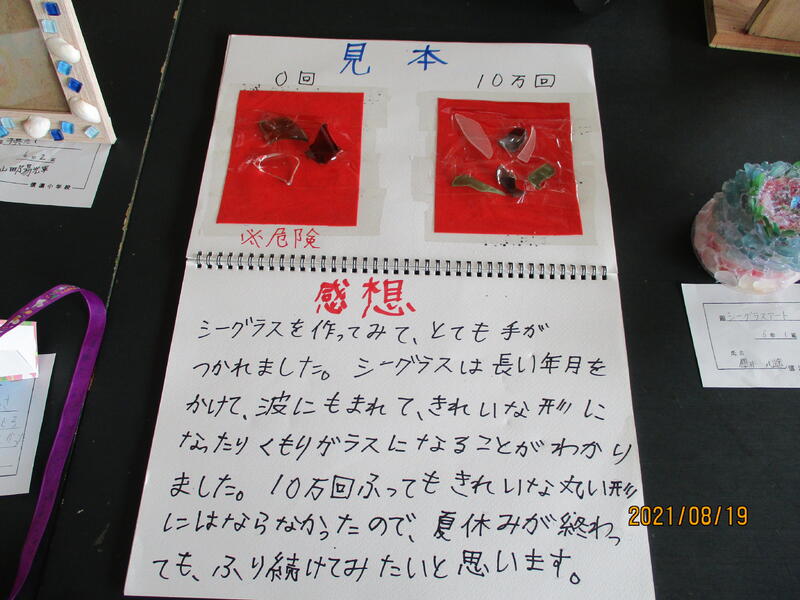 見本
0回
10万回
※危険
感想
シーグラスを作ってみて、とても手が
つかれました。シーグラスは長い年月を
かけて、波にもまれて、きれいな形に
なったりくもりガラスになることがわかり
ました。10万回ふってもきれいな丸い形
にはならなかったので、夏休みが終わっ
ても、ふり続けてみたいと思います。
6年2組
小学校
シーグラスアート
6年1組
氏名
2021/08/19